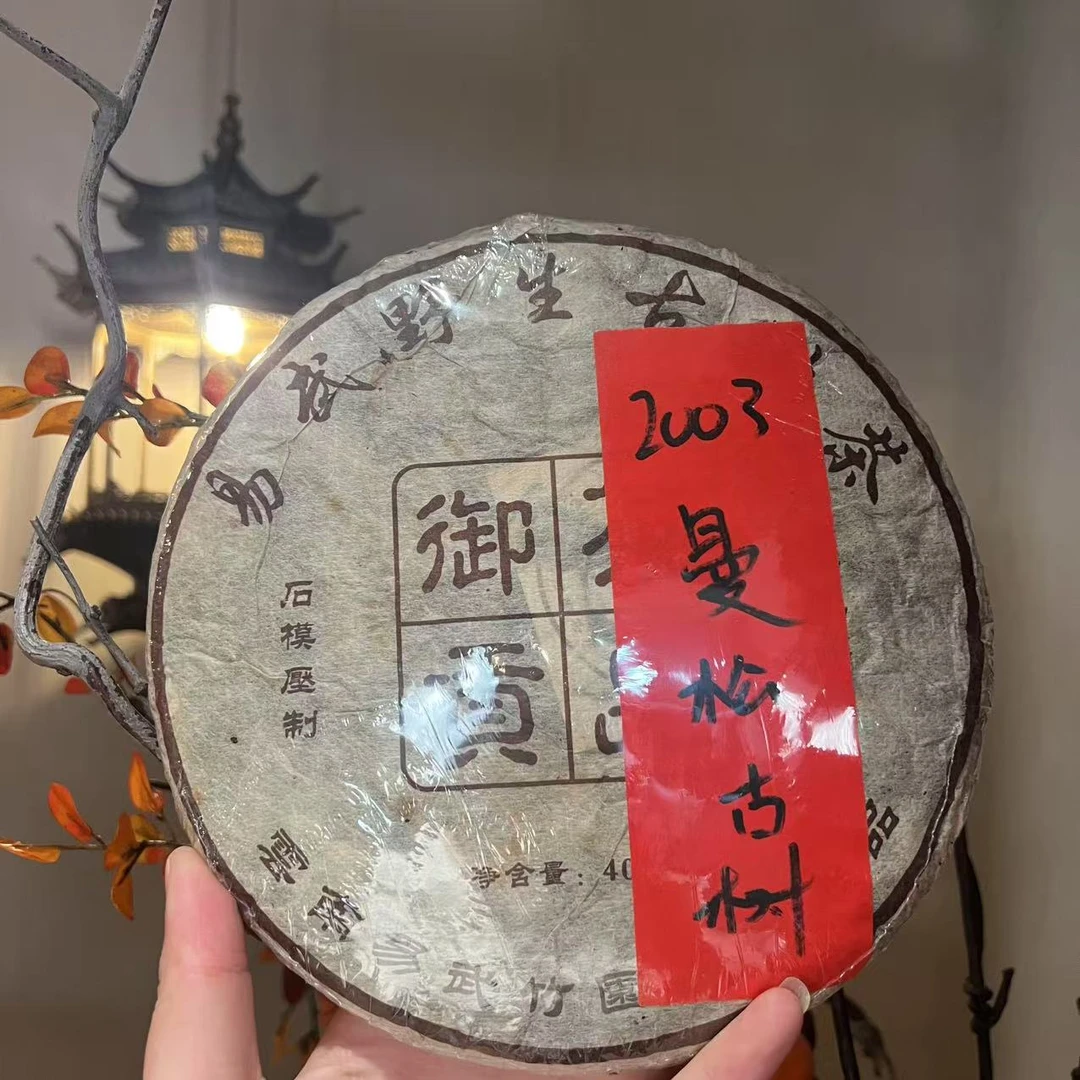 易武野生古
茶
御
貢
石模壓制
淨含量：40
易武竹園
品
2003
曼松古树